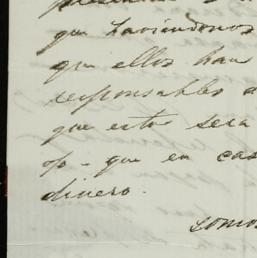 que haviendonos
que ellos han
responsables a
que este sera
go - que en cas
dinero.
somos